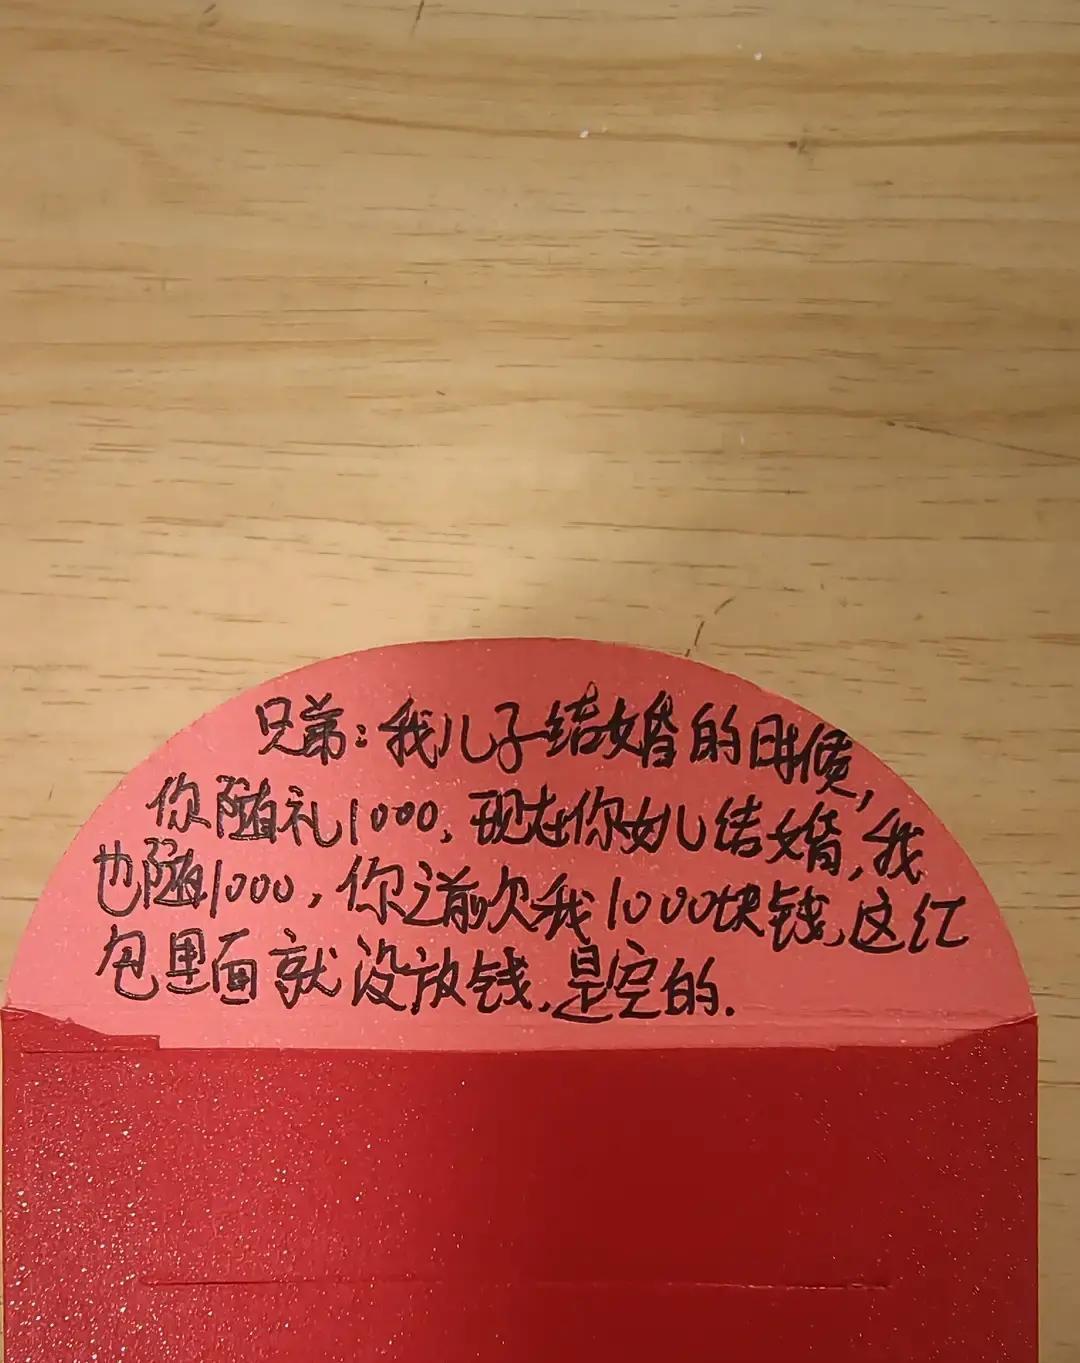 兄弟:我儿子结婚的时候,
你随礼1000,现在你女儿结婚,我
也随1000,你之前欠我1000块钱,这红
包里面就没放钱,是空的.